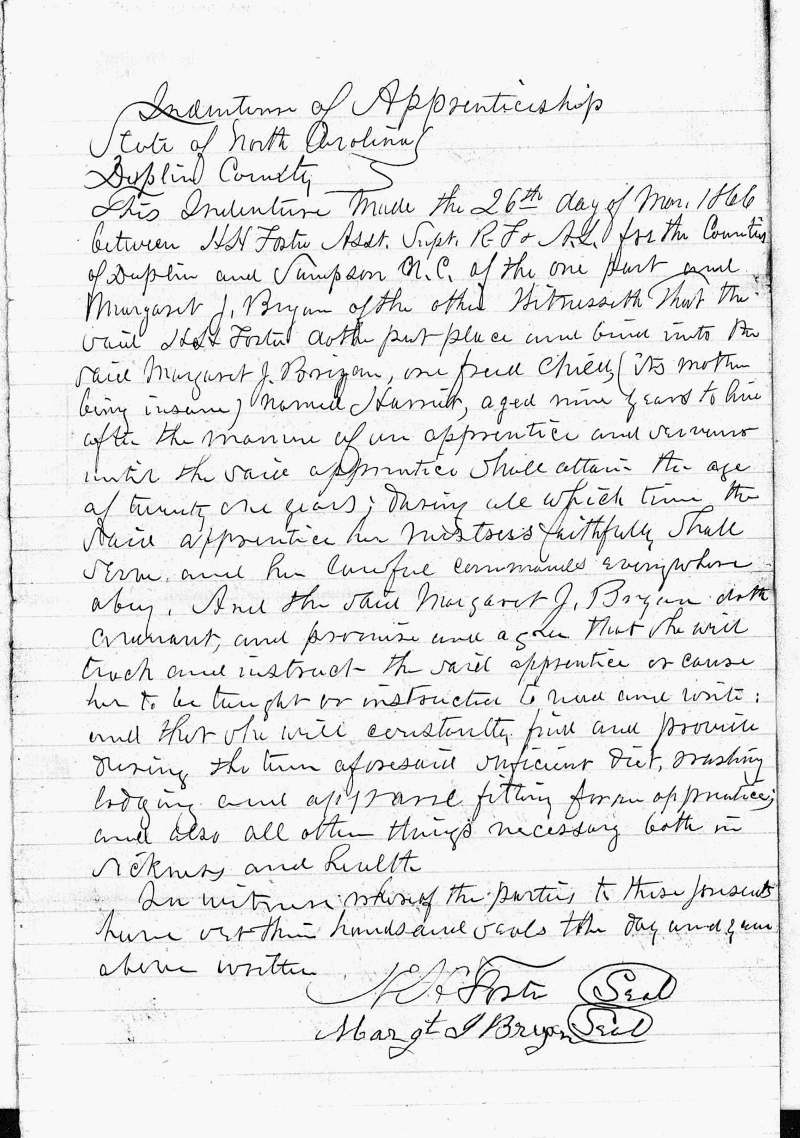 Indenture of Apprenticeship
State of North Carolina
Duplin County
This Indenture Made the 26th day of Mar. 1866
between HH Foster Asst. Supt. R. F & A.L. for the Counties
of Duplin and Sampson N.C. of the one part and
Margaret J. Bryan of the other Witnesseth That the
said HH Foster doth put place and bind unto the
said Margaret J. Bryan, one freed Child, (its mother
being insane) named Harriet, aged nine years to live
after the manner of an apprentice and servant
until the said apprentice shall attain the age
of twenty one years; during all which time the
said apprentice her mistress faithfully shall
serve and her lawful commands everywhere
obey. And the said Margaret J. Bryan doth
covenant, and promise and agree that she will
teach and instruct the said apprentice or cause
her to be taught or instructed to read and write:
and that she will constantly find and provide
during the term aforesaid sufficient diet, washing
lodging and apparel fitting for an apprentice;
and also all other things necessary both in
sickness and health
In witness whereof the parties to these presents
have set their hands and seals the day and year
above written
HH Foster (Seal)
Margt J Bryan (Seal)